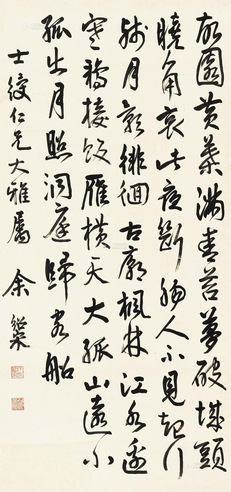 故園黄葉滿青苔夢破城頭
曉角哀此夜斷腸人不見起行
殘月影徘徊古廟楓林江水邊
寒鴉接飯雁橫天大孤山遠小
孤出月照洞庭歸客船
士綬仁兄大雅屬 余紹宋